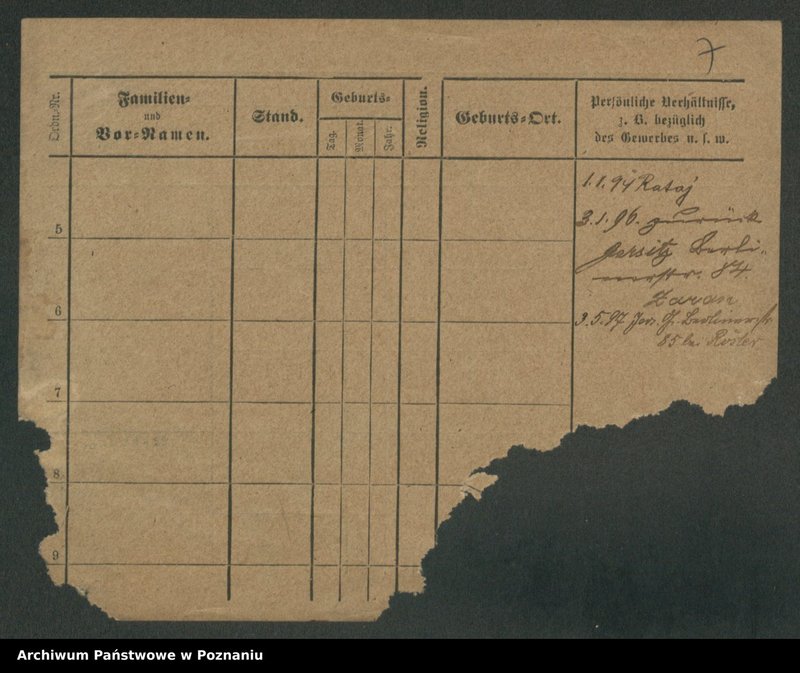 7
Ordn.-Nr.
Familien-
und
Vor-Namen.
Stand.
Geburts-
Tag.
Monat.
Jahr.
Religion.
Geburts-Ort.
Persönliche Verhältnisse,
z. B. bezüglich
des Gewerbes u. s. w.
1.1.94 Rataj
3.1.96. zurück
5
Gersitz Berli-
nerstr. 84.
Zawan
6
3.5.97 Jers. Gr. Berlinerstr
85 bei Röster
7
8
9
Archiwum Państwowe w Poznaniu